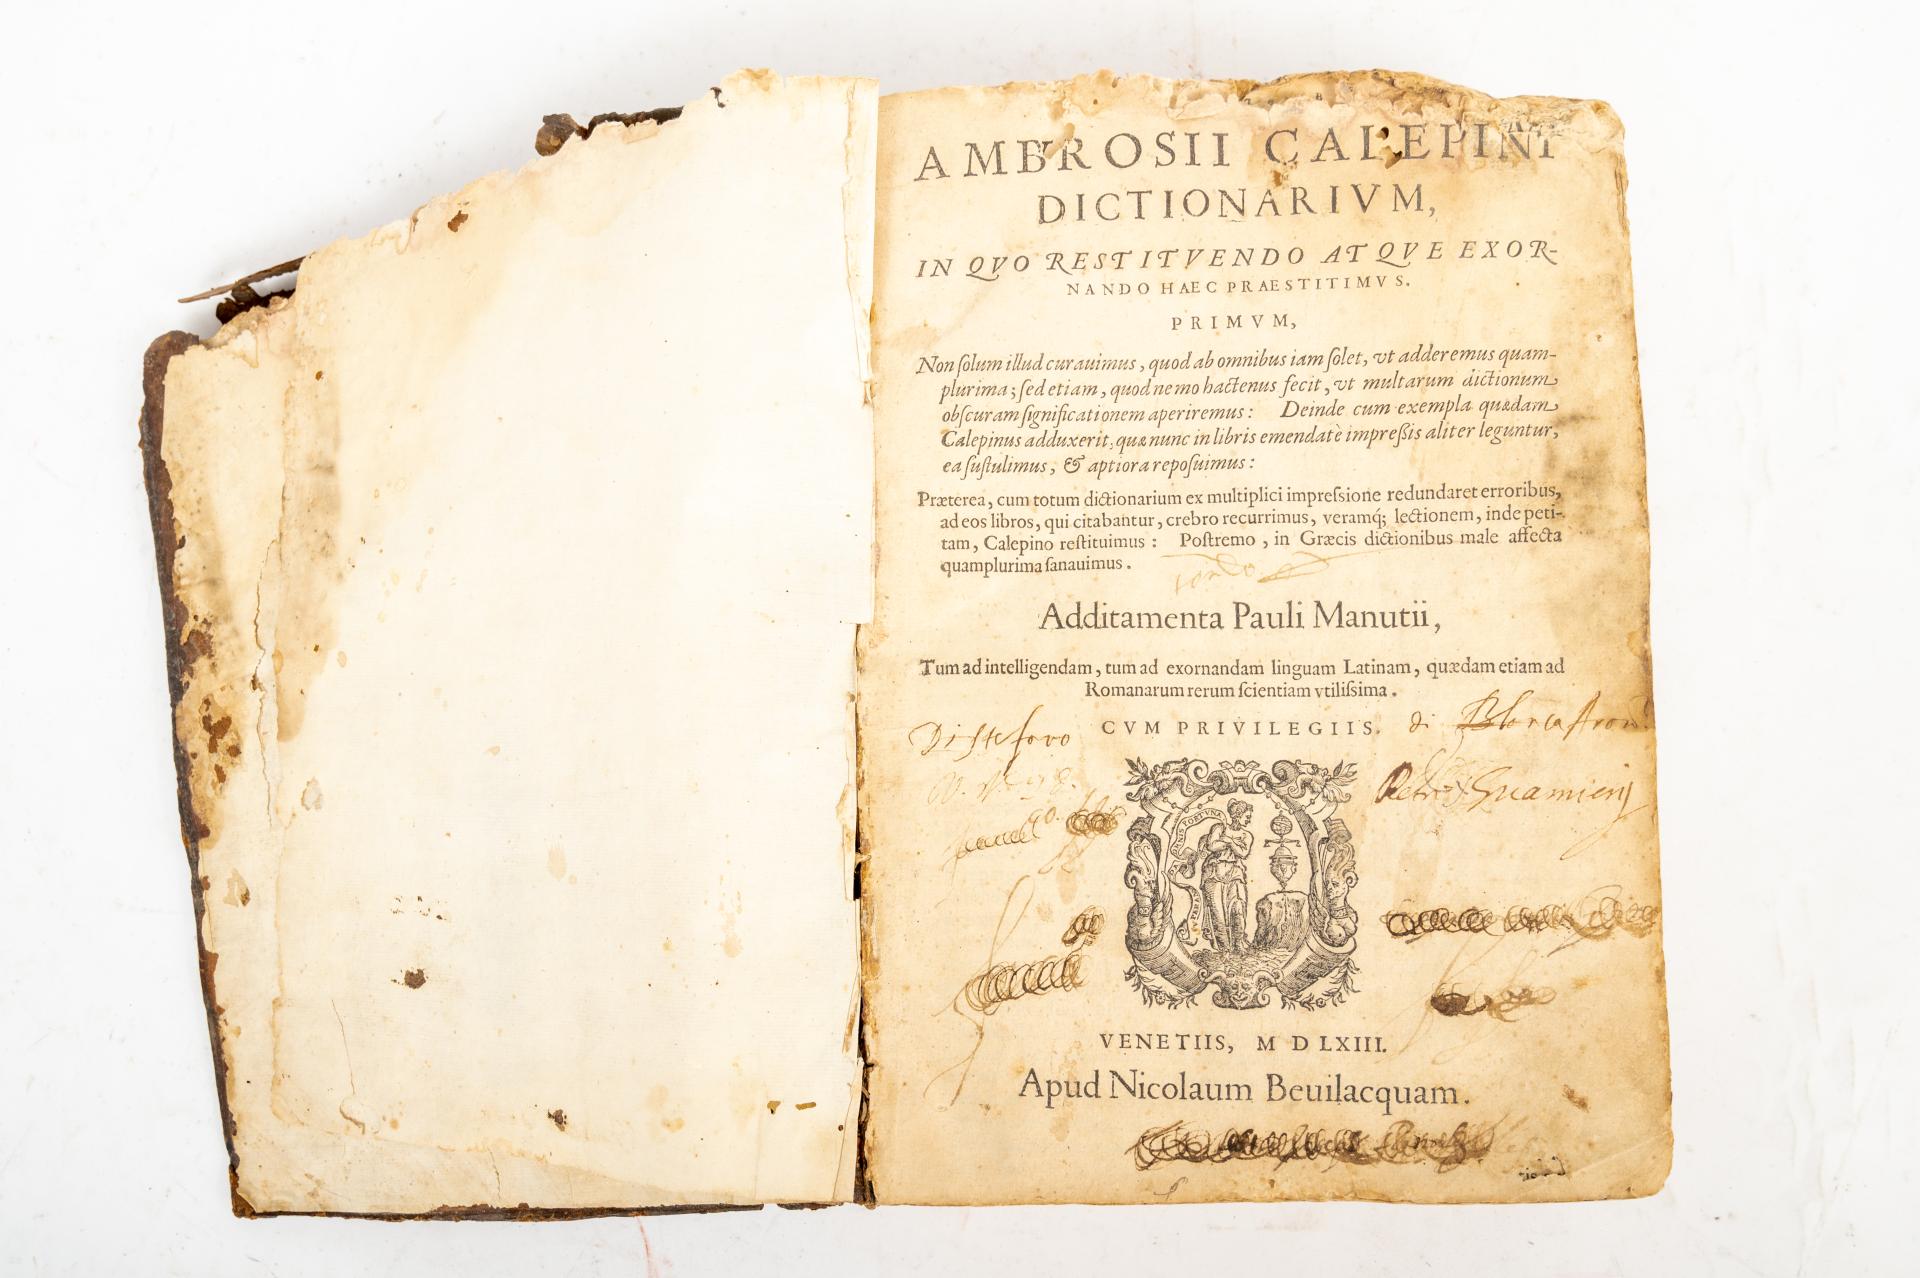 AMBROSII CALEPINI
DICTIONARIVM,
IN QVO RESTITVENDO ATQVE EXOR-
NANDO HAEC PRAESTITIMVS.
PRIMVM,
Non ſolum illud curauimus, quod ab omnibus iam ſolet, vt adderemus quam-
plurima; ſed etiam, quod nemo hactenus fecit, vt multarum dictionum
obſcuram ſignificationem aperiremus: Deinde cum exempla quædam
Calepinus adduxerit, quæ nunc in libris emendatè impreßis aliter leguntur,
ea ſuſtulimus, & aptiora repoſuimus:
Præterea, cum totum dictionarium ex multiplici impreſsione redundaret erroribus,
ad eos libros, qui citabantur, crebro recurrimus, veramq́; lectionem, inde peti-
tam, Calepino reſtituimus: Poſtremo, in Græcis dictionibus male affecta
quamplurima ſanauimus.
Additamenta Pauli Manutii,
Tum ad intelligendam, tum ad exornandam linguam Latinam, quædam etiam ad
Romanarum rerum ſcientiam vtiliſsima.
CVM PRIVILEGIIS. di
VENETIIS, M D LXIII.
Apud Nicolaum Beuilacquam.